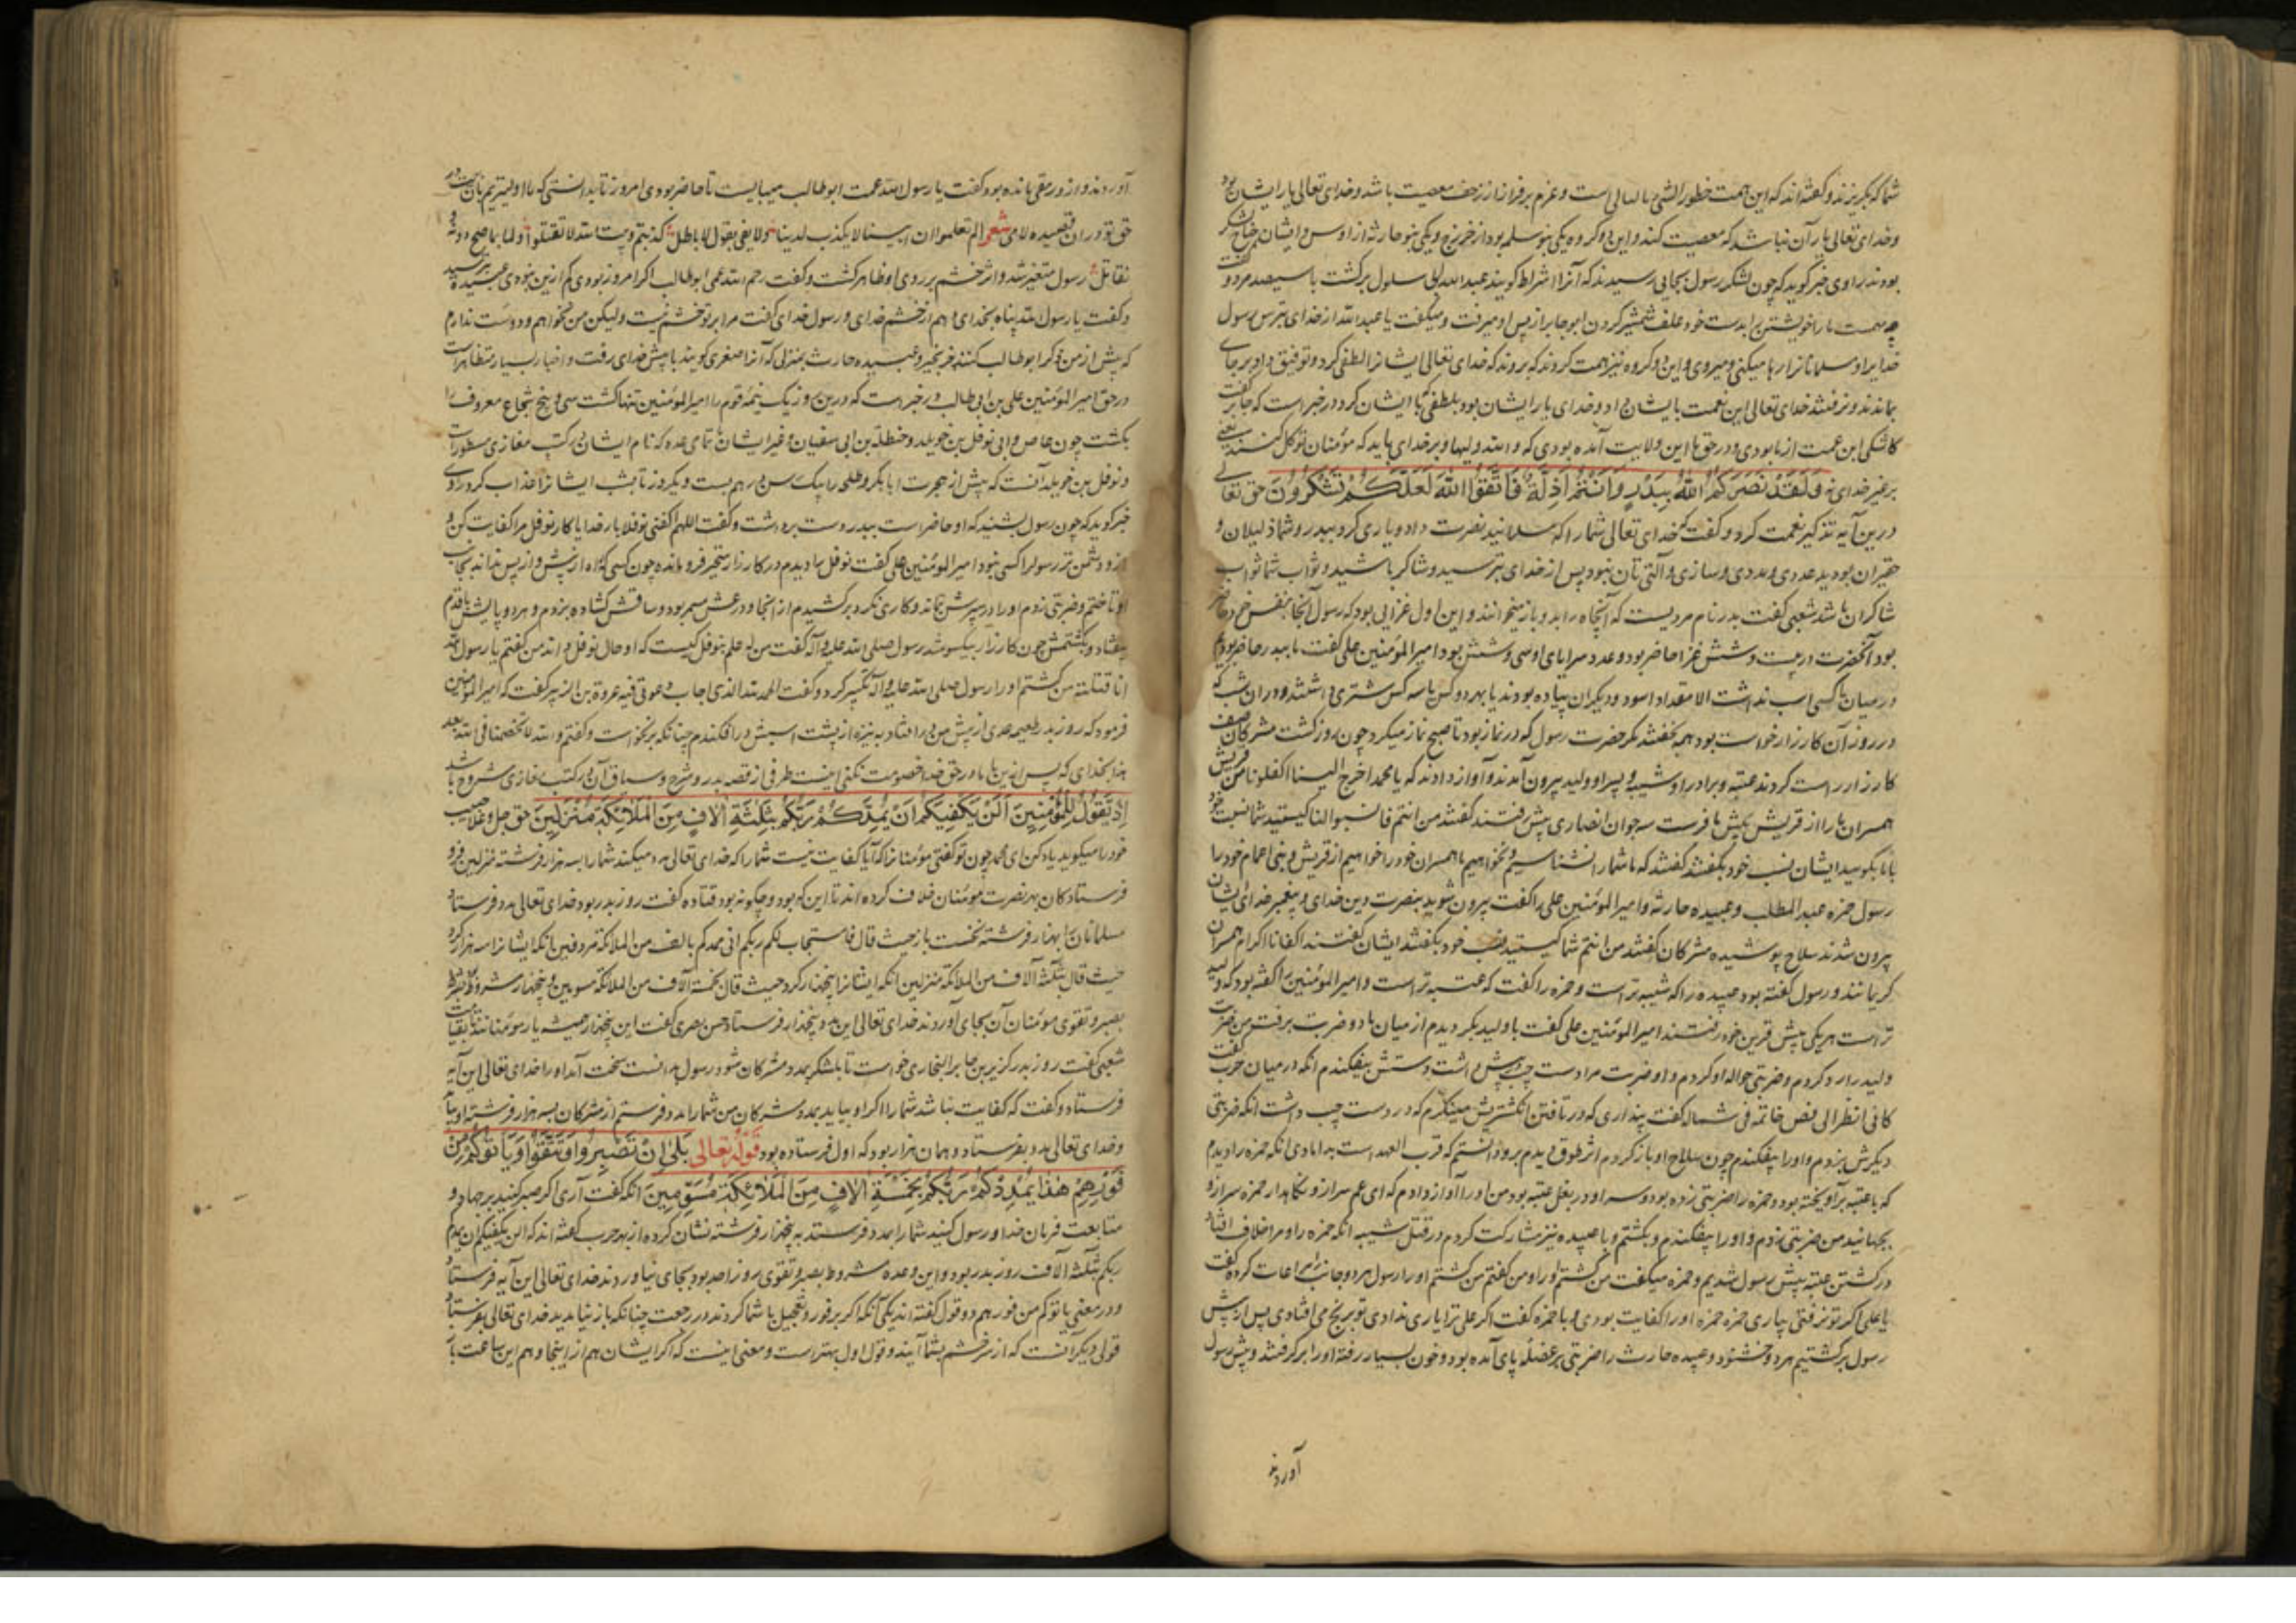 شما که بگریزند و گفته‌اند که این همت خطور الشی بالبال است و عزم بر فرار از زحف معصیت باشد و خدای تعالی یار ایشان بود
و خدای تعالی یار آن نباشد که معصیت کند و این دو گروه یکی بنو سلمه بود از خزرج و یکی بنو حارثه از اوس و ایشان جناح لشکر
بودند راوی خبر گوید که چون لشکر رسول بجایی رسیدند که آنرا اشراط گویند عبدالله ابی سلول برگشت با سیصد مرد و گفت
چه مهمست ما را خویشتن را بدست خود علف شمشیر کردن ابو جابر از پس او میرفت و میگفت یا عبدالله از خدای بترس رسول
خدایرا و مسلمانانرا رها میکنی و میروی و این دو گروه نیز همت کردند که بروند که خدای تعالی ایشانرا لطفی کرد و توفیق داد بر جای
بماندند و نرفتند خدای تعالی این نعمت با ایشان داد و خدای یار ایشان بود بلطفی که با ایشان کرد در خبر است که جابر گفت
کاشکی این همت از ما بودی و در حق ما این ولایت آمده بودی که والله ولیهما و بر خدای باید که مؤمنان توکل کنند یعنی
بر غیر خدای نه وَلَقَدْ نَصَرَكُمُ اللَّهُ بِبَدْرٍ وَأَنْتُمْ أَذِلَّةٌ فَاتَّقُوا اللَّهَ لَعَلَّكُمْ تَشْكُرُونَ حق تعالی
درین آیه تذکیر نعمت کرد و گفت که خدای تعالی شما را که مسلمانید نصرت داد و یاری کرد ببدر و شما ذلیلان و
حقیران بودید عددی و مددی و سازی و آلتی تان نبود پس از خدای بترسید و شاکر باشید و ثواب شما ثواب
شاکران باشد شعبی گفت بدر نام مردیست که آنچاه را بدو باز میخوانند و این اول غزایی بود که رسول آنجا بنفس خود حاضر
بود آنحضرت در بیست و شش غزا حاضر بود و عدد سرایای او سی و شش بود امیرالمؤمنین علی گفت ما ببدر حاضر بودیم
در میان ما کسی اسب نداشت الا مقداد اسود و دیگران پیاده بودند یا بهر دو کس یا سه کس شتری داشتند و دران شب که
در روز آن کارزار خواست بود همه بخفتند مگر حضرت رسول که در نماز بود تا صبح نماز میکرد چون روز گشت مشرکان صف
کارزار راست کردند عتبه و برادر او شیبه و پسر او ولید بیرون آمدند و آواز دادند که یا محمد اخرج الینا اکفاونا من قریش
همسران ما را از قریش پیش ما فرست سه جوان انصاری پیش رفتند گفتند من انتم فانسبوا لنا کیستید شما نسبت خود
با ما بگویید ایشان نسب خود بگفتند گفتند که ما شما را نشناسیم و نخواهیم ما همسران خود را خواهیم از قریش و بنی اعمام خود را
رسول حمزه عبدالمطلب و عبیده حارثه و امیرالمؤمنین علی را گفت بیرون شوید بنصرت دین خدای و پیغمبر خدای ایشان
بیرون شدند سلاح پوشیده مشرکان گفتند من انتم شما کیستید نسب خود بگفتند ایشان گفتند اکفانا اکرام همسران
کریمانند و رسول گفته بود عبیده را که شیبه تراست و حمزه را گفت که عتبه تراست و امیرالمؤمنین را گفته بود که ولید
تراست هر یکی پیش قرین خود رفتند امیرالمؤمنین علی گفت با ولید بگردیدم از میان ما دو ضربت برفت من ضربت
ولید را رد کردم و ضربتی حواله او کردم و او ضربت مرا دست چپ پیش داشت دستش بیفکندم آنکه در میان حرب گفت
کانی انظر الی فص خاتمه فی شماله گفت پنداری که در تافتن انگشتریش مینگرم که در دست چپ داشت آنکه ضربتی
دیگرش بزدم و او را بیفکندم چون سلاح او باز کردم اثر طوق دیدم برو دانستم که قرب العهد است بدامادی آنکه حمزه را دیدم
که با عتبه برآویخته بود و حمزه را ضربتی زده بود و سر او در بغل عتبه بود من او را آواز دادم که ای عم سر از و نگاه‌دار حمزه سر ازو
بجهانید من ضربتی بزدم و او را بیفکندم و بکشتم و با عبیده نیز مشارکت کردم در قتل شیبه آنکه حمزه را و مرا خلاف افتاد
در کشتن عتبه پیش رسول شدیم و حمزه میگفت من کشتم او را و من گفتم من کشتم او را رسول هر دو جانب را مراعات کرد گفت
یا علی اگر تو نرفتی بیاری حمزه حمزه او را کفایت بودی و با حمزه گفت اگر علی ترا یاری ندادی تو برنج می افتادی پس از پیش
رسول برگشتیم هر دو خشنود و عبیده حارث را ضربتی بر عضله پای آمده بود و خون بسیار رفته او را برگرفتند و پیش رسول
آوردند
آوردند و از و رمقی مانده بود گفت یا رسول الله عمت ابوطالب میبایست تا حاضر بودی امروز تا بدانستی که ما اولیتریم بآن بیت در
حق تو دران قصیده لامی شعر الم تعلموا ان ابننا لا یکذب لدینا ولا یعنی بقول الاباطل کذبتم وبیت الله لا تقتلوا ولما بماصح دونه و
نقاتل رسول متغیر شد و اثر خشم بر روی او ظاهر گشت و گفت رحم الله عمی ابوطالب اگر امروز بودی کم ازین نبودی عبیده بترسید
و گفت یا رسول الله پناه بخدای دهم از خشم خدای و رسول خدای گفت مرا بر تو خشم نیست ولیکن من نخواهم و دوست ندارم
که پیش از من ذکر ابوطالب کنند جز بخیر و عبیده حارث بمنزلی که آنرا صفری گویند با پیش خدای رفت و اخبار بسیار متظاهرست
در حق امیرالمؤمنین علی بن ابی طالب در خبر است که درین روز یک نیمه قوم را امیرالمؤمنین تنها کشت سی و پنج شجاع معروف را
بکشت چون عاص و ابی نوفل بن خویلد و حنظلة بن ابی سفیان و غیر ایشان تا تمامی عده که نام ایشان در کتب مغازی مسطور است
و نوفل بن خویلد آنست که پیش از هجرت ابابکر و طلحه را بیک رسن در هم بست و یکروز تا بشب ایشانرا عذاب کرد راوی
خبر گوید که چون رسول بشنید که او حاضر است ببدر دست برداشت و گفت اللهم اکفنی نوفلا بار خدایا کار نوفل مرا کفایت کن و
ازو دشمن تر رسول را کسی نبود امیرالمؤمنین علی گفت نوفل را دیدم در کارزار متحیر فرو مانده چون کسی که راه از پیش و از پس نداند بجانب
او تاختم و ضربتی زدم او را در سپرش بماند و کاری نکرد برکشیدم از آنجا و درعش سمر بود و ساقش گشاده بزدم و هر دو پایش باقدم
بیفتاد و بکشتمش چون کارزار یکسو شد رسول صلی الله علیه و آله گفت من له علم بنوفل کیست که او حال نوفل داند من گفتم یا رسول الله
انا قتلته من کشتم او را رسول صلی الله علیه و آله تکبیر کرد و گفت الحمد لله الذی اجاب دعوتی فیه عروة بن الزبیر گفت که امیرالمؤمنین
فرمود که روز بدر طعیمه عدی از پیش من در افتاد به نیزه از پشت اسبش در افکندم چنانکه برنخواست و گفتم والله لا تخصمنا فی الله بعد
هذا بخدای که پس ازین با ما در حق خدا خصومت نکنی اینست طرفی از قصه بدر و شرح و سیاق آن در کتب مغازی مشروح باشد
إِذْ تَقُولُ لِلْمُؤْمِنِينَ أَلَنْ يَكْفِيَكُمْ أَنْ يُمِدَّكُمْ رَبُّكُمْ بِثَلٰثَةِ آلَافٍ مِنَ الْمَلَائِكَةِ مُنْزَلِينَ حق جل و علا حبیب
خود را میگوید یاد کن ای محمد چون تو گفتی مؤمنانرا که آیا کفایت نیست شما را که خدای تعالی مدد میکند شما را بسه هزار فرشته منزلین فرو
فرستادگان بهر نصرت مؤمنان خلاف کرده‌اند تا این که بود و چگونه بود قتاده گفت روز بدر بود خدای تعالی مدد فرستاد
مسلمانان را بهزار فرشته نخست باز حیث قال فاستجاب لکم ربکم انی ممدکم بالف من الملائکة مردفین بآنکه ایشانرا سه هزار کرد
حیث قال بثلثة آلاف من الملائکة منزلین آنکه ایشانرا پنجهزار کرد حیث قال بخمسة آلاف من الملائکة مسومین و پنجهزار مشروط بشرط
بصبر و تقوی مؤمنان آن بجای آوردند خدای تعالی این مدد پنجهزار فرستاد حسن بصری گفت این پنجهزار همیشه یار مؤمنانند تا بقیامت
شعبی گفت روز بدر کزیر بن جابر البخاری خواست تا بلشکر بمدد مشرکان شود رسول بدانست سخت آمد او را خدای تعالی این آیه
فرستاد و گفت که کفایت نباشد شما را اگر او بیاید بمدد مشرکان من شما را مدد فرستم از مشرکان بسه هزار فرشته او نیامد
و خدای تعالی مدد بفرستاد و همان هزار بود که اول فرستاده بود قوله تعالی بَلٰى إِنْ تَصْبِرُوا وَتَتَّقُوا وَيَأْتُوكُمْ مِنْ
فَوْرِهِمْ هٰذَا يُمْدِدْكُمْ رَبُّكُمْ بِخَمْسَةِ آلَافٍ مِنَ الْمَلَائِكَةِ مُسَوِّمِينَ آنکه گفت آری اگر صبر کنید بر جهاد و
متابعت فرمان خدا و رسول کنید شما را بمدد فرستد به پنجهزار فرشته نشان کرده از بهر حرب گفته‌اند که الن یکفیکم ان یمدکم
ربکم بثلثة آلاف روز بدر بود و این وعده مشروط بصبر و تقوی روز احد بود بجای نیاوردند خدای تعالی این آیه فرستاد
و در معنی یاتوکم من فورهم دو قول گفته‌اند یکی آنکه اگر بر فور و تعجیل با شما گردند در رجعت چنانکه باز نیابدید خدای تعالی بفرستاد
قولی دیگر آنست که از سر خشم بشما آیند و قول اول بهتر است و معنی اینست که اگر ایشان هم از اینجا و هم این ساعت با